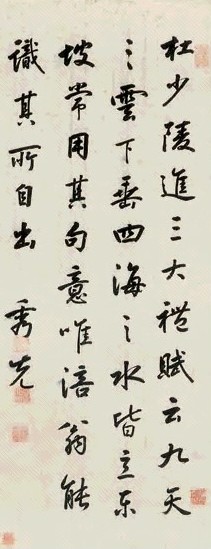 杜少陵進三大禮賦云九天
之雲下垂四海之水皆立東
坡常用其句意唯涪翁能
識其所自出
秀先